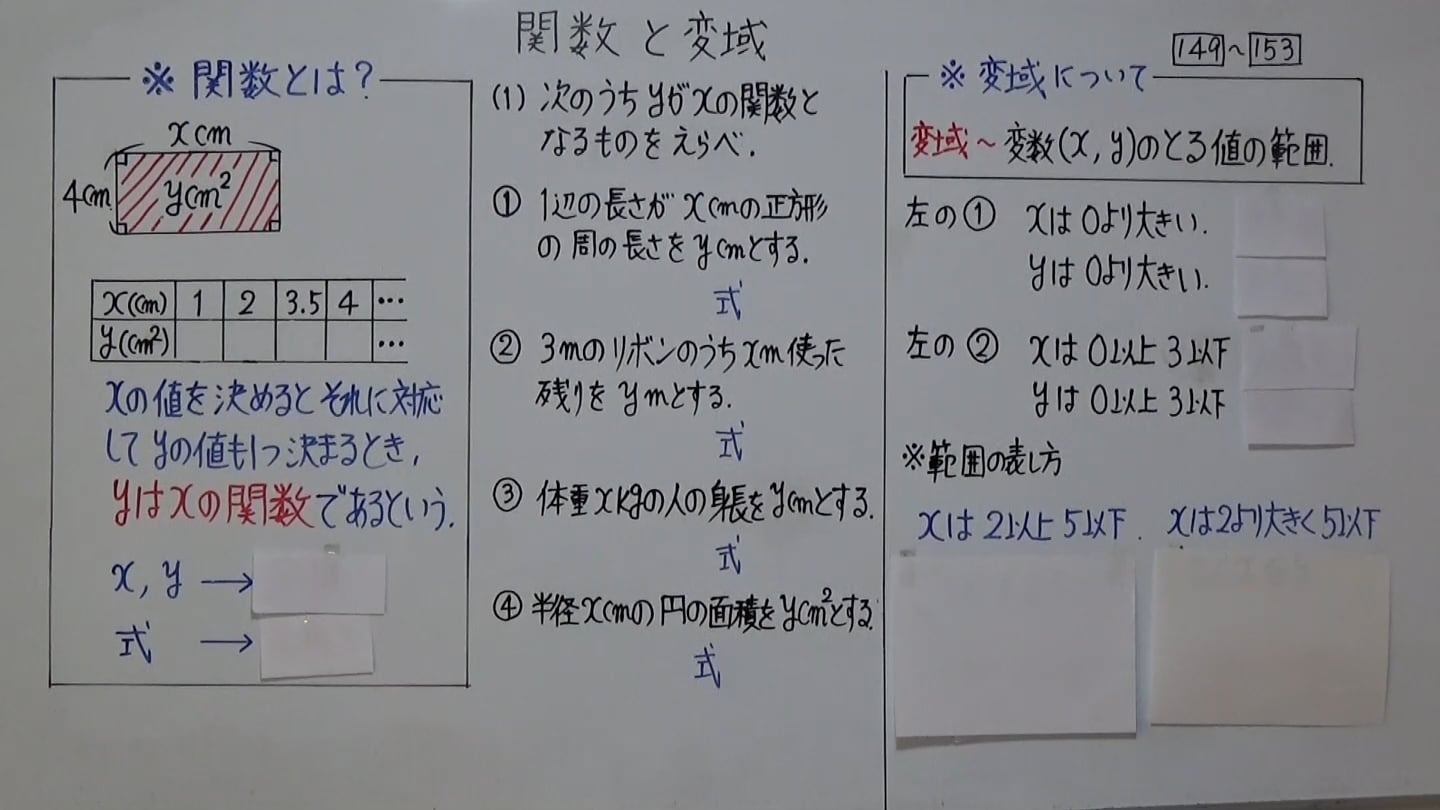 関数と変域
149～153
※関数とは？
xcm
4cm
ycm²
x(cm) 1 2 3.5 4 …
y(cm²) …
xの値を決めるとそれに対応
してyの値も1つ決まるとき,
yはxの関数であるという.
x, y →
式 →
(1) 次のうちyがxの関数と
なるものをえらべ.
① 1辺の長さがxcmの正方形
の周の長さをycmとする.
式
② 3mのリボンのうちxm使った
残りをymとする.
式
③ 体重xkgの人の身長をycmとする.
式
④ 半径xcmの円の面積をycm²とする.
式
※変域について
変域～変数(x, y)のとる値の範囲.
左の① xは0より大きい.
yは0より大きい.
左の② xは0以上3以下
yは0以上3以下
※範囲の表し方
xは2以上5以下. xは2より大きく5以下